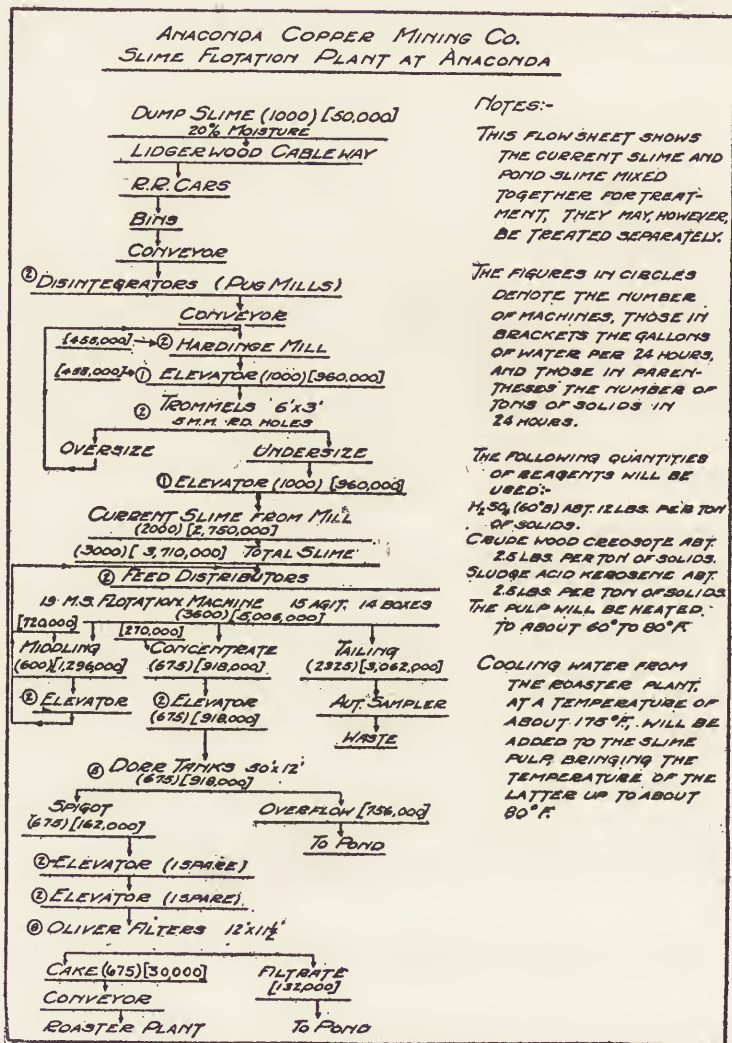 ANACONDA COPPER MINING CO.
SLIME FLOTATION PLANT AT ANACONDA
DUMP SLIME (1000) [50,000]
20% MOISTURE
LIDGERWOOD CABLEWAY
R.R. CARS
BINS
CONVEYOR
② DISINTEGRATORS (PUG MILLS)
CONVEYOR
[455,000] ② HARDINGE MILL
[455,000] ① ELEVATOR (1000) [960,000]
② TROMMELS 6'x3'
5 M.M. RD. HOLES
OVERSIZE UNDERSIZE
① ELEVATOR (1000) [960,000]
CURRENT SLIME FROM MILL
(2000) [2,750,000]
(3000) [3,710,000] TOTAL SLIME
② FEED DISTRIBUTORS
15 M.S. FLOTATION MACHINE 15 AGIT. 14 BOXES
(3600) [5,006,000]
[720,000] [270,000]
MIDDLING CONCENTRATE TAILING
(600) [1,296,000] (675) [918,000] (2325) [3,062,000]
② ELEVATOR ② ELEVATOR AUT. SAMPLER
(675) [918,000]
WASTE
DORR TANKS 50'x12'
(675) [918,000]
SPIGOT OVERFLOW [756,000]
(675) [162,000]
TO POND
② ELEVATOR (1 SPARE)
② ELEVATOR (1 SPARE)
OLIVER FILTERS 12'x11½'
CAKE (675) [30,000] FILTRATE
[132,000]
CONVEYOR
ROASTER PLANT TO POND
NOTES:-
THIS FLOW SHEET SHOWS
THE CURRENT SLIME AND
POND SLIME MIXED
TOGETHER FOR TREAT-
MENT, THEY MAY, HOWEVER,
BE TREATED SEPARATELY.
THE FIGURES IN CIRCLES
DENOTE THE NUMBER
OF MACHINES, THOSE IN
BRACKETS THE GALLONS
OF WATER PER 24 HOURS,
AND THOSE IN PAREN-
THESES THE NUMBER OF
TONS OF SOLIDS IN
24 HOURS.
THE FOLLOWING QUANTITIES
OF REAGENTS WILL BE
USED:-
H₂SO₄ (60°B) ABT. 12 LBS. PER TON
OF SOLIDS.
CRUDE WOOD CREOSOTE ABT.
2.5 LBS. PER TON OF SOLIDS.
SLUDGE ACID KEROSENE ABT.
2.5 LBS. PER TON OF SOLIDS.
THE PULP WILL BE HEATED
TO ABOUT 60° TO 80°F.
COOLING WATER FROM
THE ROASTER PLANT,
AT A TEMPERATURE OF
ABOUT 175°F, WILL BE
ADDED TO THE SLIME
PULP, BRINGING THE
TEMPERATURE OF THE
LATTER UP TO ABOUT
80°F.